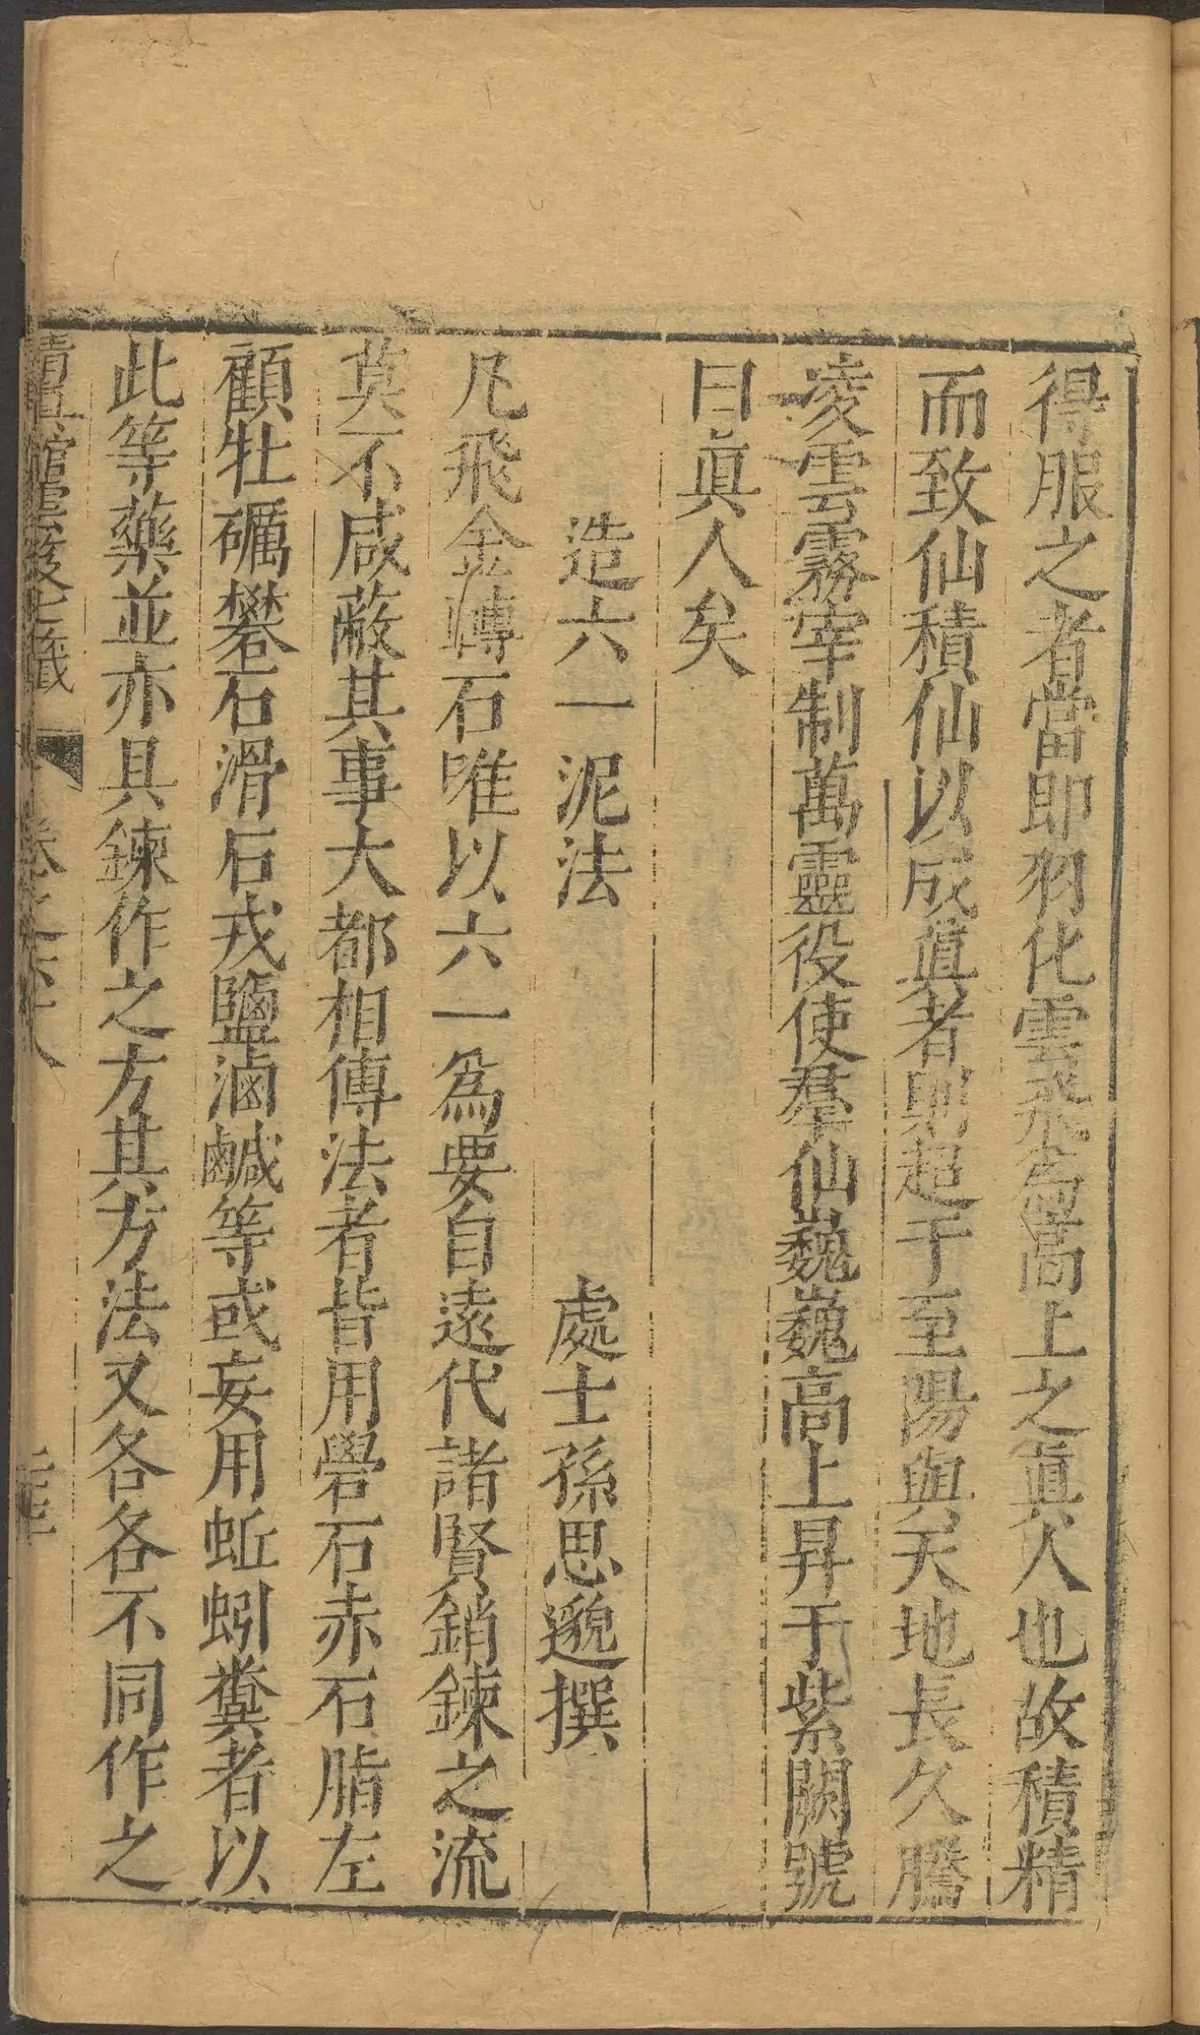 得服之者當即羽化雲飛爲高上之眞人也故積精
而致仙積仙以成眞者則超于至陽與天地長久騰
凌雲霧宰制萬靈役使羣仙巍巍高上昇于紫闕號
曰眞人矣
造六一泥法 處士孫思邈撰
凡飛金薄石唯以六一爲要自遠代諸賢銷鍊之流
莫不咸蔽其事大都相傳法者皆用礐石赤石脂左
顧牡礪礬石滑石戎鹽滷鹹等或妄用蚯蚓糞者以
此等藥並亦具鍊作之方其方法又各各不同作之
清眞館雲笈七籤 卷之六十八